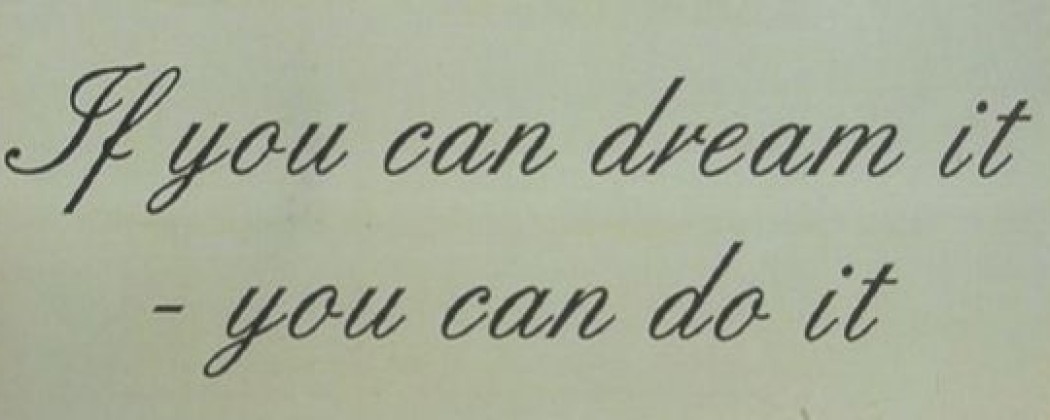 If you can dream it
- you can do it